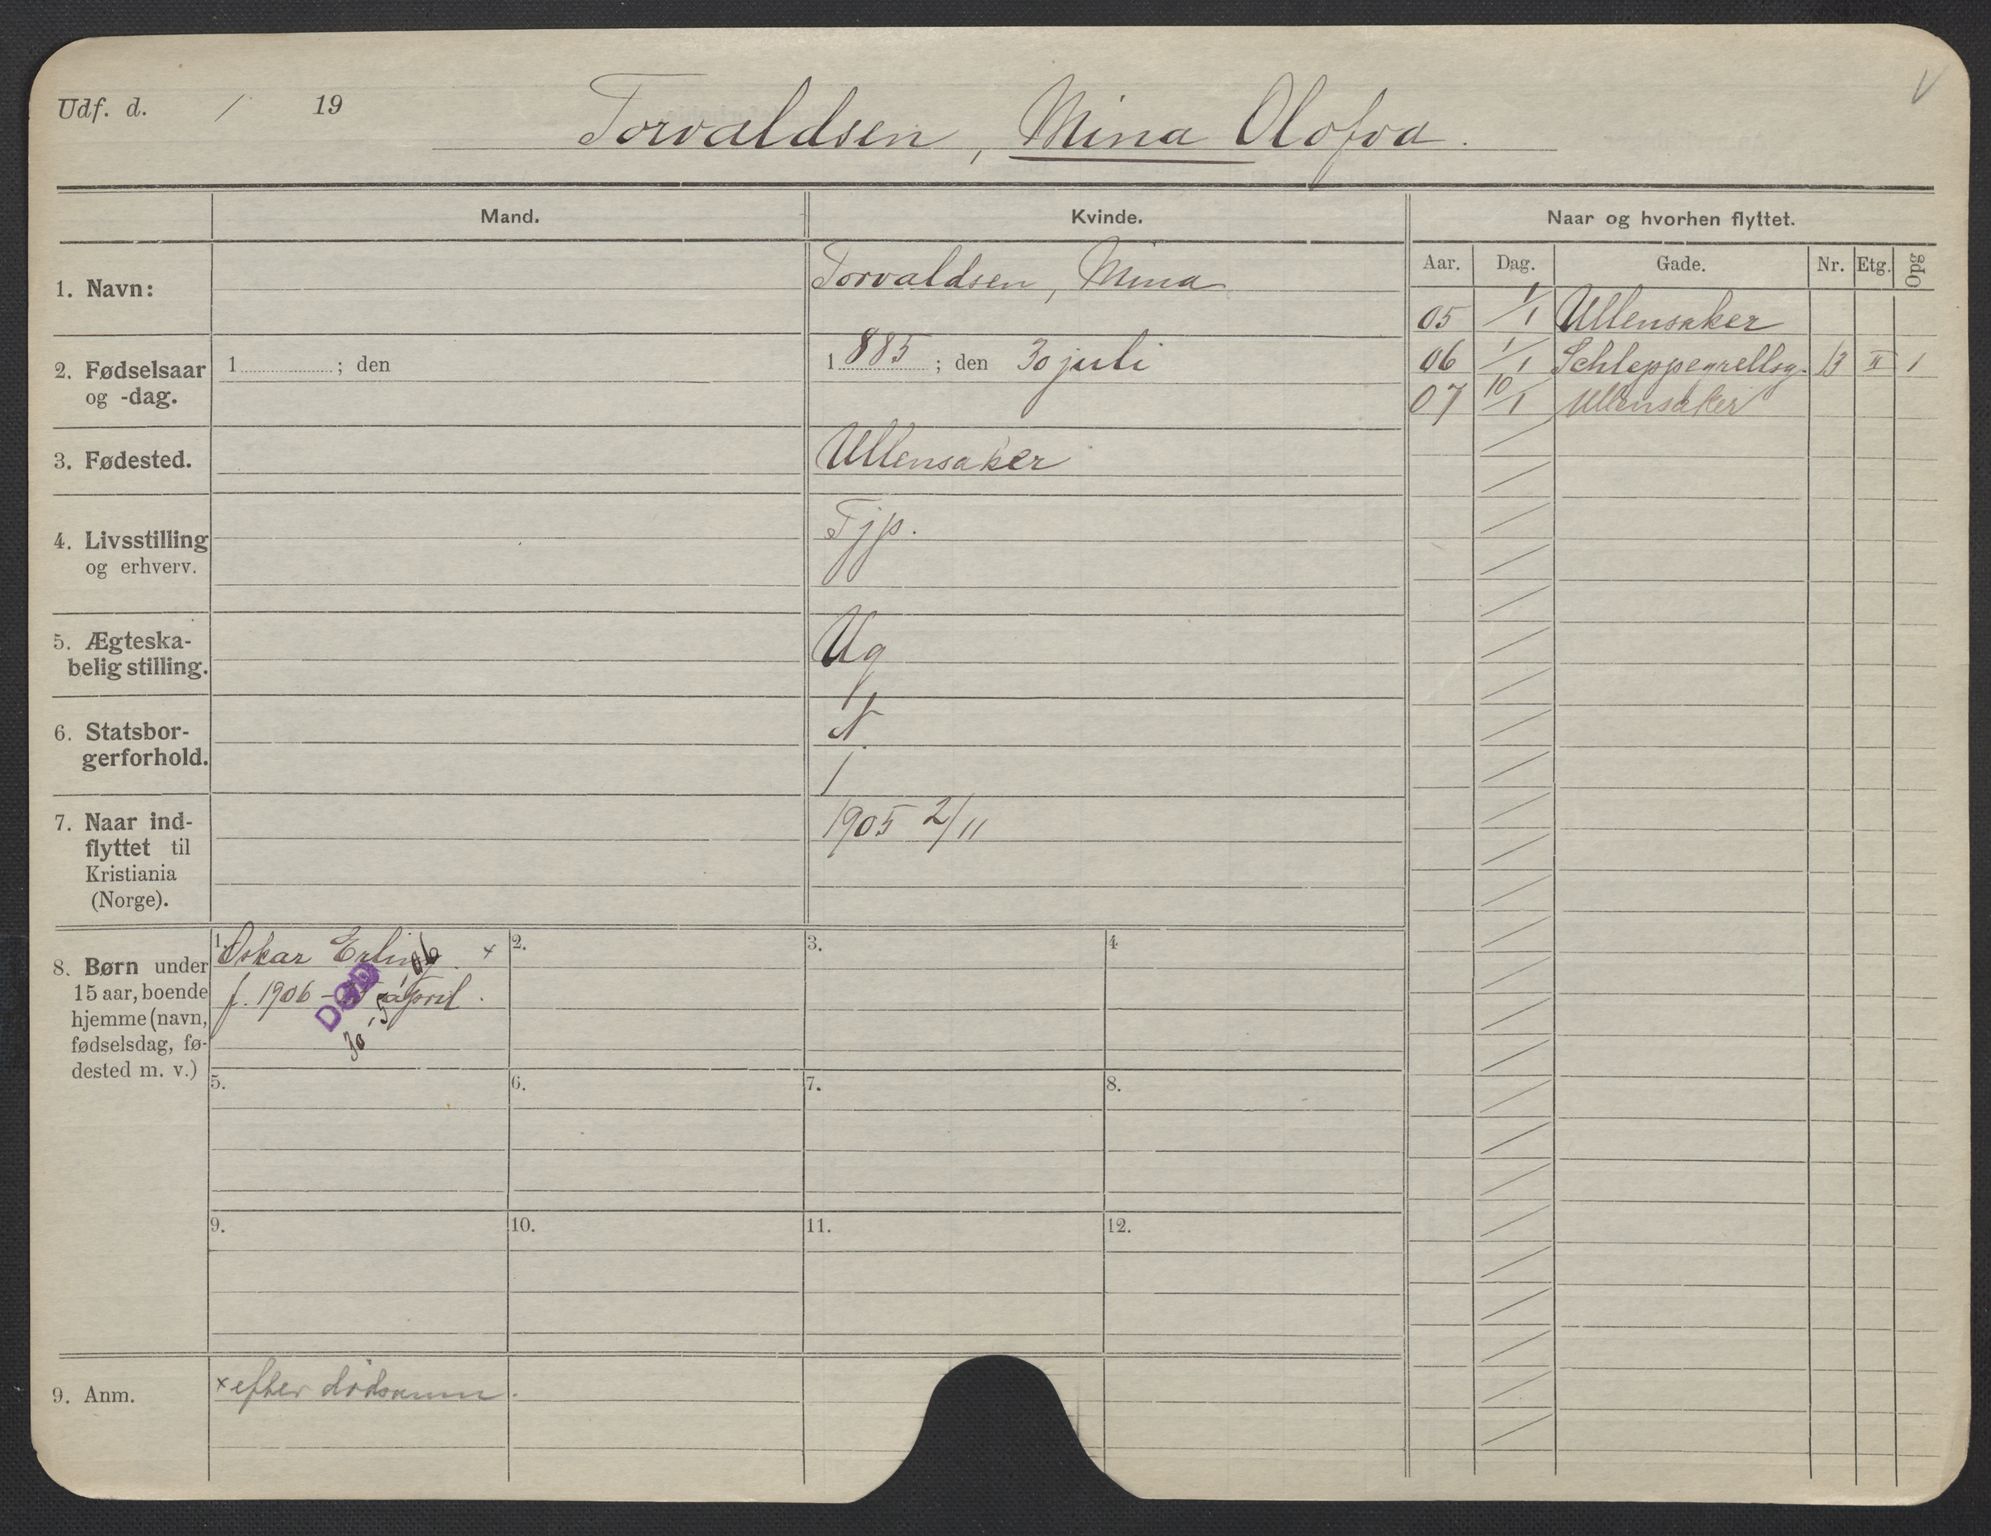 Udf. d. / 19
Torvaldsen, Mina Olofva.
V
Mand.
Kvinde.
Naar og hvorhen flyttet.
Aar. Dag. Gade. Nr. Etg. Opg
1. Navn:
Torvaldsen, Mina
05 1/1 Ullensaker
06 1/1 Schleppegrellsg. 13 II 1
07 10/1 Ullensaker
2. Fødselsaar
og -dag.
1 ; den
1885 ; den 30 juli
3. Fødested.
Ullensaker
4. Livsstilling
og erhverv.
Tjp.
5. Ægteska-
belig stilling.
Ug
6. Statsbor-
gerforhold.
N.
7. Naar ind-
flyttet til
Kristiania
(Norge).
1905 2/11
8. Børn under
15 aar, boende
hjemme (navn,
fødselsdag, fø-
dested m. v.)
1. Oskar Erling. x
f. 1906 - april.
DØD
30-5-06
2.
3.
4
5.
6.
7.
8.
9.
10.
11.
12.
9. Anm.
x efter dødsanm.